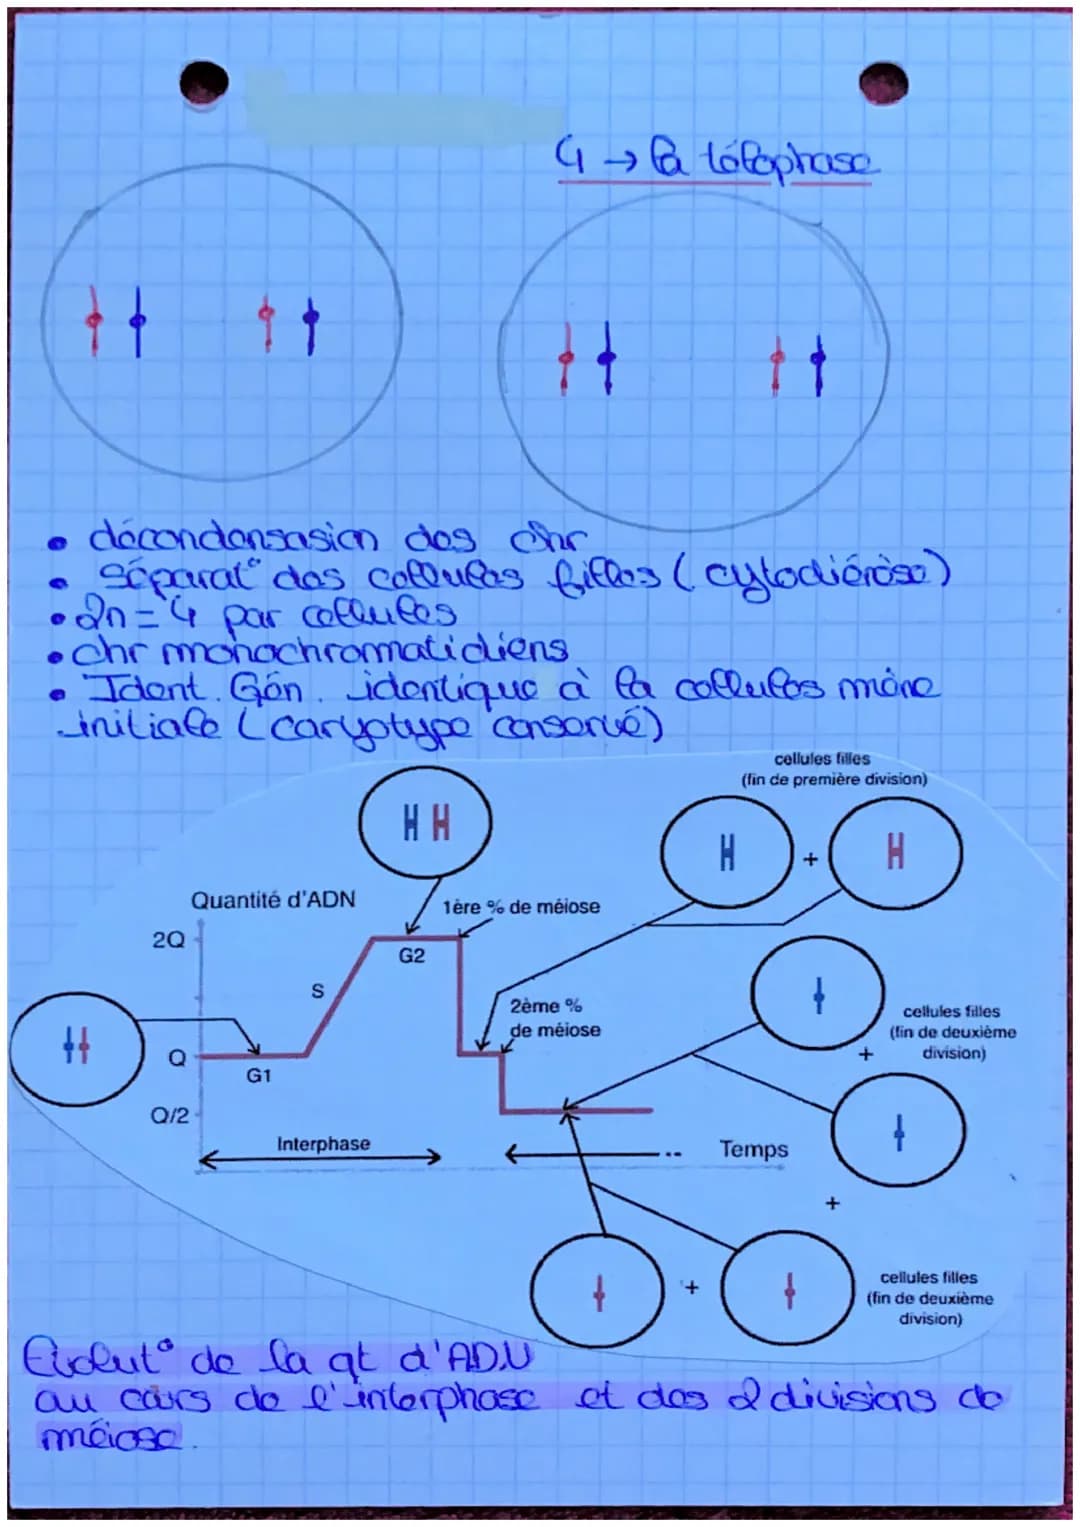 4 → la télophase
• décondensasion des chr
• séparat° des cellules filles (cytodiérèse)
• 2n = 4 par cellules
• chr monochromatidiens
• Ident. Gén. identique à la cellules mère
initiale (caryotype conservé)
cellules filles
(fin de première division)
H H
H + H
Quantité d'ADN
1ère % de méiose
2Q
G2
S
2ème %
de méiose
cellules filles
(fin de deuxième
division)
+
Q
G1
Q/2
Interphase
Temps
+
+
cellules filles
(fin de deuxième
division)
Évolut° de la qt d'ADN
au cours de l'interphase et des 2 divisions de
méiose.